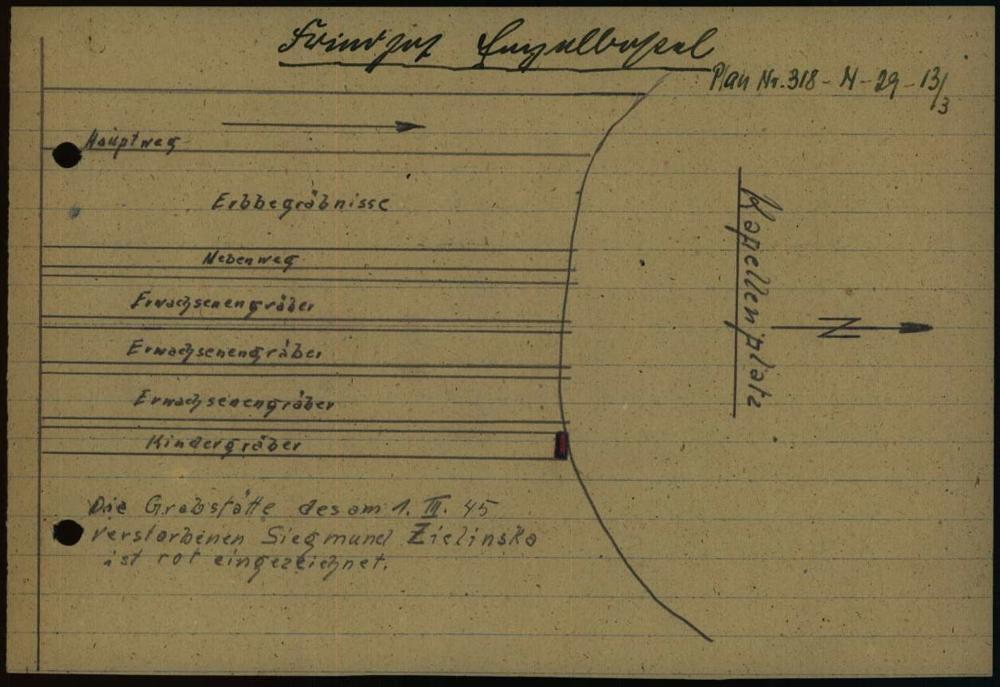 Friedhof Engelbostel
Plan Nr. 318 - N - 29 - 13/3
Hauptweg
Erbbegräbnisse
Nebenweg
Erwachsenengräber
Erwachsenengräber
Erwachsenengräber
Kindergräber
Kapellenplatz
N
Die Grabstätte des am 1. III. 45
verstorbenen Siegmund Zielinska
ist rot eingezeichnet.